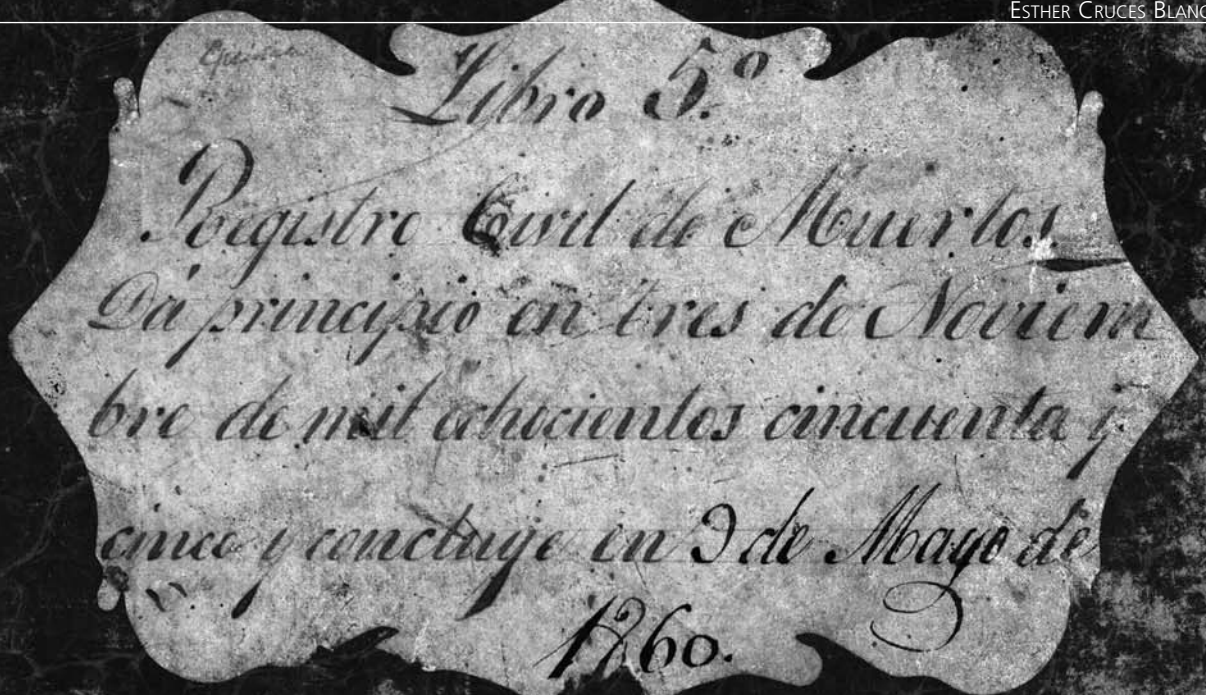 ESTHER CRUCES BLANC
Libro 5.º
Registro Civil de Muertos.
Dá principio en tres de Noviem
bre de mil ochocientos cincuenta y
cinco y concluye en 9 de Mayo de
1860.